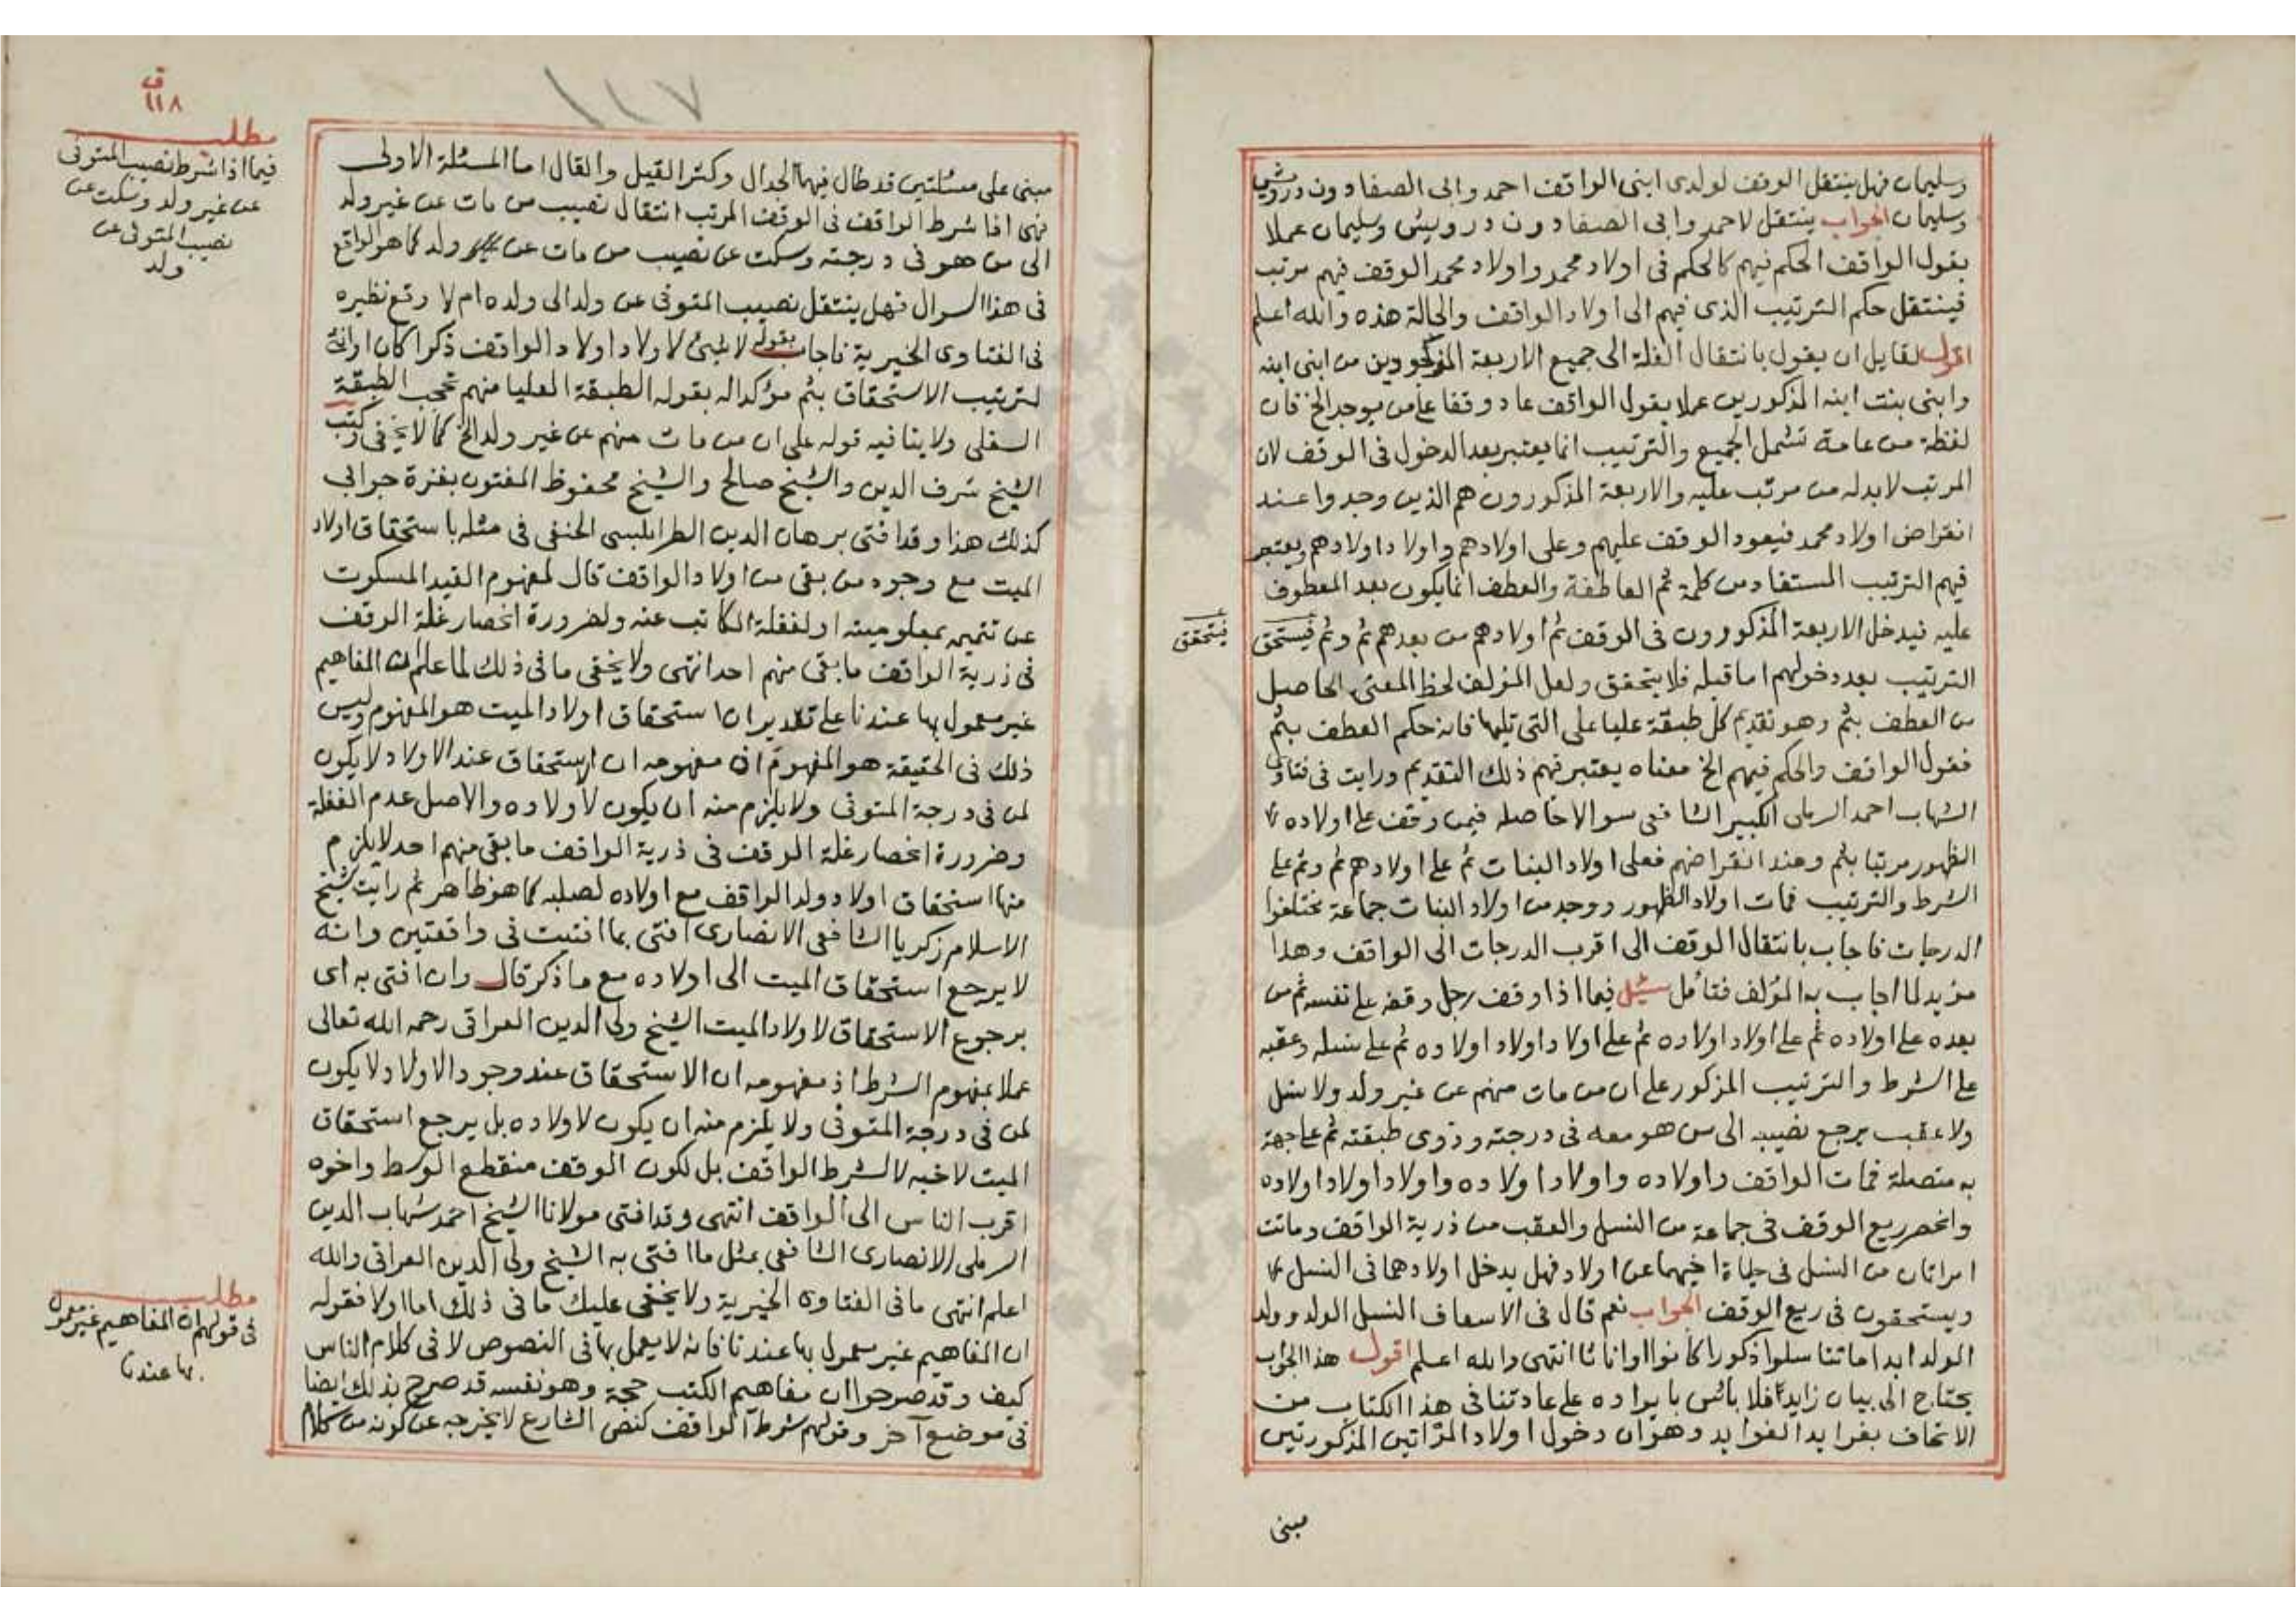 وسليمان فهل ينتقل الوقف لولدى ابنى الواقف احمد وابى الصفا دون درويش
وسليمان الجواب ينتقل لاحمد وابى الصفا دون درويش وسليمان عملا
بقول الواقف الحكم فيهم كالحكم فى اولاد محمد واولاد محمد الوقف فيهم مرتب
فينتقل حكم الترتيب الذى فيهم الى اولاد الواقف والحالة هذه والله اعلم
اقول لقايل ان يقول بانتقال الغلة الى جميع الاربعة المذكورين من ابنى ابنه
وابنى بنت ابنه المذكورين عملا بقول الواقف عاد وقفا على من يوجد الخ فان
لفظة من عامة تشمل الجميع والترتيب انما يعتبر بعد الدخول فى الوقف لان
المرتب لا بد له من مرتب عليه والاربعة المذكورون هم الذين وجدوا عند
انقراض اولاد محمد فيعود الوقف عليهم وعلى اولادهم واولاد اولادهم ويعتبر
فيهم الترتيب المستفاد من كلمة ثم العاطفة والعطف انما يكون بعد المعطوف
عليه فيدخل الاربعة المذكورون فى الوقف ثم اولادهم من بعدهم ثم وثم فيستحق
فيتحقق
الترتيب بعد دخولهم اما قبله فلا يتحقق ولعل المؤلف لحظ المعنى الحاصل
من العطف بثم وهو تقديم كل طبقة عليا على التى تليها فانه حكم العطف بثم
فقول الواقف والحكم فيهم الخ معناه يعتبر فيهم ذلك التقديم ورايت فى فتاوى
الشهاب احمد الرملى الكبير الشافعى سوالا حاصله فيمن وقف على اولاده
الظهور مرتبا بثم وعند انقراضهم فعلى اولاد البنات ثم على اولادهم ثم وثم على
الشرط والترتيب فمات اولاد الظهور ووجد من اولاد البنات جماعة مختلفوا
الدرجات فاجاب بانتقال الوقف الى اقرب الدرجات الى الواقف وهذا
مؤيد لما اجاب به المؤلف فتامل سئل فيما اذا وقف رجل وقفه على نفسه ثم من
بعده على اولاده ثم على اولاد اولاده ثم على اولاد اولاد اولاده ثم على نسله وعقبه
على الشرط والترتيب المذكور على ان من مات منهم عن غير ولد ولا نسل
ولا عقب يرجع نصيبه الى من هو معه فى درجته وذوى طبقته ثم على جهة
بر متصلة فمات الواقف واولاده واولاد اولاده واولاد اولاد اولاده
وانحصر ريع الوقف فى جماعة من النسل والعقب من ذرية الواقف وماتت
امراتان من النسل فى حياة اخيهما عن اولاد فهل يدخل اولادهما فى النسل
ويستحقون فى ريع الوقف الجواب نعم قال فى الاسعاف النسل الولد وولد
الولد ابدا ما تناسلوا ذكورا كانوا او اناثا انتهى والله اعلم اقول هذا الجواب
يحتاج الى بيان زايد فلا بائس بايراده على عادتنا فى هذا الكتاب من
الاتحاف بفرايد الفوايد وهو ان دخول اولاد المراتين المذكورتين
مبنى
١١٧
ق
١١٨
مطلب
فيما اذا شرط نصيب المتوفى
عن غير ولد وسكت عن
نصيب المتوفى عن
ولد
مبنى على مسئلتين قد طال فيهما الجدال وكثر القيل والقال اما المسئلة الاولى
فهى اذا شرط الواقف فى الوقف المرتب انتقال نصيب من مات عن غير ولد
الى من هو فى درجته وسكت عن نصيب من مات عن ولد كما هو الواقع
فى هذا السوال فهل ينتقل نصيب المتوفى عن ولد الى ولده ام لا وقع نظيره
فى الفتاوى الخيرية فاجاب بقوله لا شيئ لاولاد اولاد الواقف ذكرا كان او انثى
لترتيب الاستحقاق بثم مؤكدا له بقوله الطبقة العليا منهم تحجب الطبقة
السفلى ولا ينافيه قوله على ان من مات منهم عن غير ولد الخ كما لا يخفى وكتب
الشيخ شرف الدين والشيخ صالح والشيخ محفوظ المفتون بغزة جوابى
كذلك هذا وقد افتى برهان الدين الطرابلسى الحنفى فى مثله باستحقاق اولاد
الميت مع وجود من بقى من اولاد الواقف قال لمفهوم القيد المسكوت
عن تتميمه بمعلوميته او لغفلة الكاتب عنه ولضرورة انحصار غلة الوقف
فى ذرية الواقف ما بقى منهم احد انتهى ولا يخفى ما فى ذلك لما علم ان المفاهيم
غير معمول بها عندنا على تقدير ان استحقاق اولاد الميت هو المفهوم وليس
ذلك فى الحقيقة هو المفهوم اذ مفهومه ان الاستحقاق عند الاولاد لا يكون
لمن فى درجة المتوفى ولا يلزم منه ان يكون لاولاده والاصل عدم الغفلة
وضرورة انحصار غلة الوقف فى ذرية الواقف ما بقى منهم احد لا يلزم
منها استحقاق اولاد ولد الواقف مع اولاده لصلبه كما هو ظاهر ثم رايت شيخ
الاسلام زكريا الشافعى الانصارى افتى بما افتيت فى واقعتين وانه
لا يرجع استحقاق الميت الى اولاده مع ما ذكر قال وان افتى به اى
برجوع الاستحقاق لاولاد الميت الشيخ ولى الدين العراقى رحمه الله تعالى
عملا بمفهوم الشرط اذ مفهومه ان الاستحقاق عند وجود الاولاد لا يكون
لمن فى درجة المتوفى ولا يلزم منه ان يكون لاولاده بل يرجع استحقاق
الميت لاخيه لا لشرط الواقف بل لكون الوقف منقطع الوسط واخوه
اقرب الناس الى الواقف انتهى وقد افتى مولانا الشيخ احمد شهاب الدين
الرملى الانصارى الشافعى بمثل ما افتى به الشيخ ولى الدين العراقى والله
اعلم انتهى ما فى الفتاوى الخيرية ولا يخفى عليك ما فى ذلك اما اولا فقوله
ان المفاهيم غير معمول بها عندنا فانه لا يعمل بها فى النصوص لا فى كلام الناس
كيف وقد صرحوا ان مفاهيم الكتب حجة وهو نفسه قد صرح بذلك ايضا
فى موضع آخر وقولهم شرط الواقف كنص الشارع لا يخرجه عن كونه من كلام
مطلب
فى قولهم ان المفاهيم غير معمول
بها عندنا